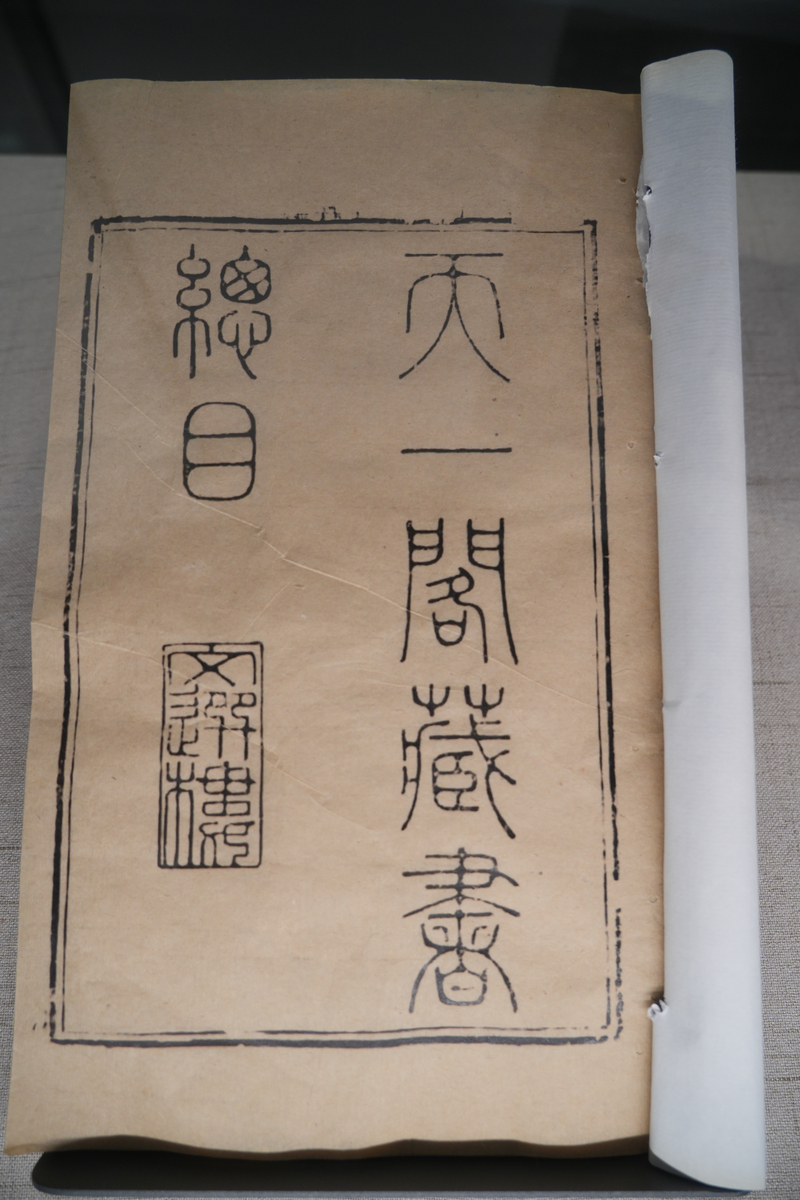 天一閣藏書
總目
文選樓